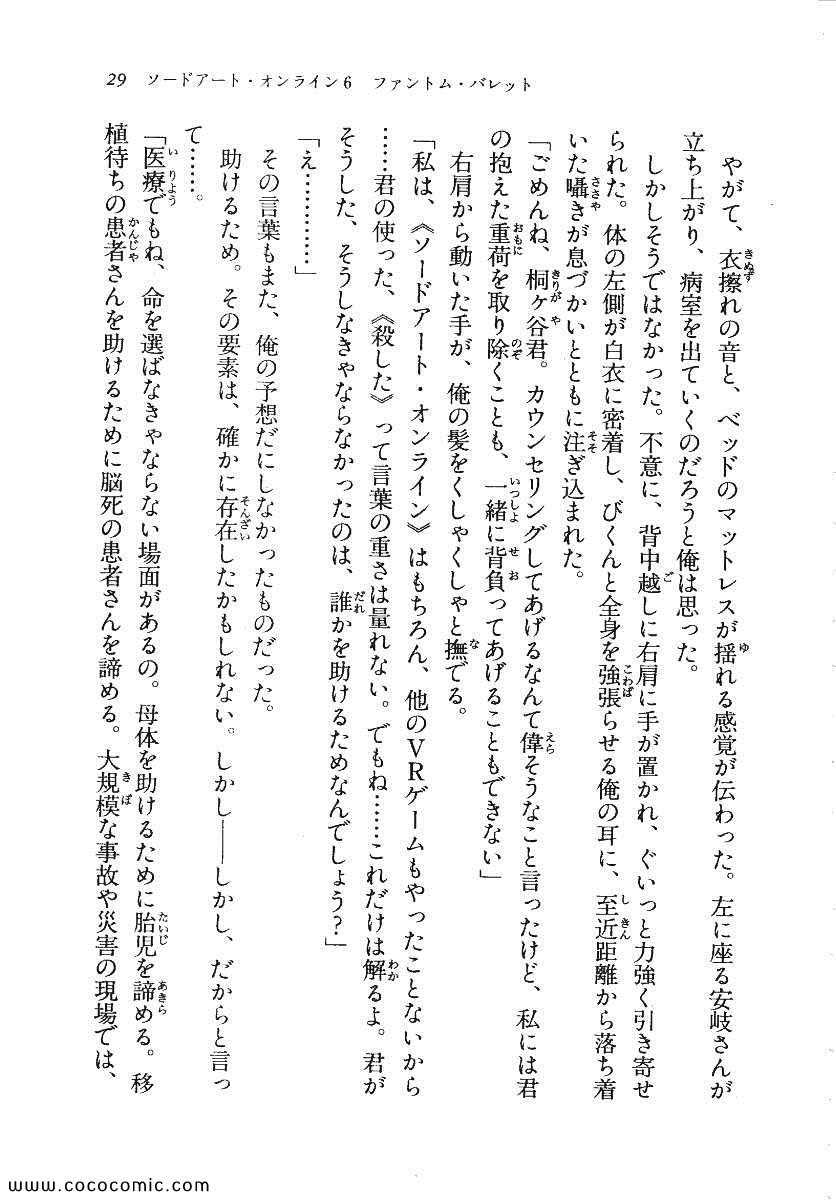 29　ソードアート・オンライン6　ファントム・バレット
やがて、衣擦れの音と、ベッドのマットレスが揺れる感覚が伝わった。左に座る安岐さんが
立ち上がり、病室を出ていくのだろうと俺は思った。
しかしそうではなかった。不意に、背中越しに右肩に手が置かれ、ぐいっと力強く引き寄せ
られた。体の左側が白衣に密着し、びくんと全身を強張らせる俺の耳に、至近距離から落ち着
いた囁きが息づかいとともに注ぎ込まれた。
「ごめんね、桐ヶ谷君。カウンセリングしてあげるなんて偉そうなこと言ったけど、私には君
の抱えた重荷を取り除くことも、一緒に背負ってあげることもできない」
右肩から動いた手が、俺の髪をくしゃくしゃと撫でる。
「私は、《ソードアート・オンライン》はもちろん、他のVRゲームもやったことないから
……君の使った、《殺した》って言葉の重さは量れない。でもね……これだけは解るよ。君が
そうした、そうしなきゃならなかったのは、誰かを助けるためなんでしょう？」
「え…………」
その言葉もまた、俺の予想だにしなかったものだった。
助けるため。その要素は、確かに存在したかもしれない。しかし――しかし、だからと言っ
て……。
「医療でもね、命を選ばなきゃならない場面があるの。母体を助けるために胎児を諦める。移
植待ちの患者さんを助けるために脳死の患者さんを諦める。大規模な事故や災害の現場では、
www.cococomic.com